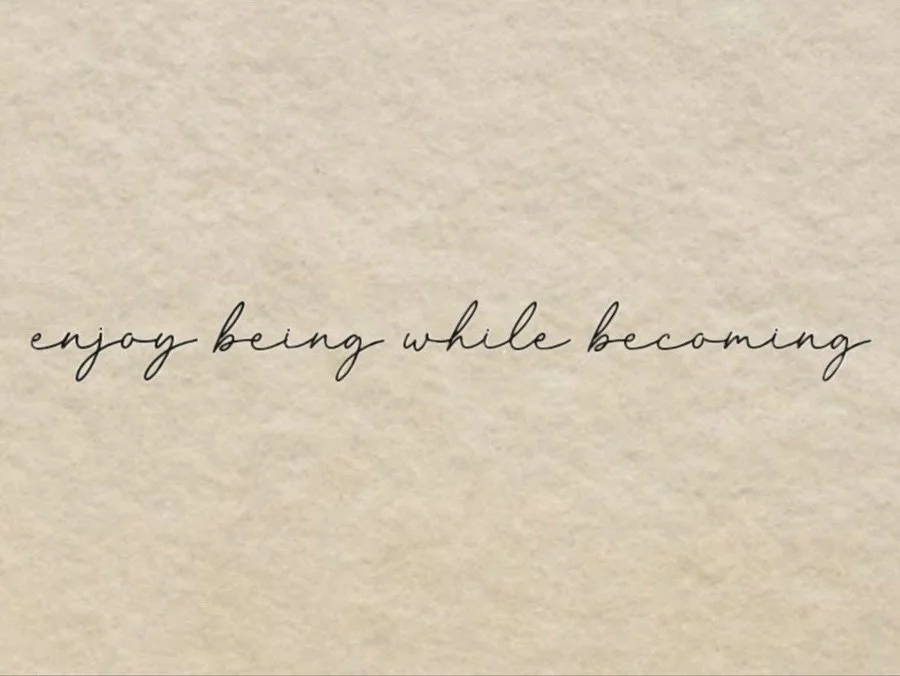 enjoy being while becoming